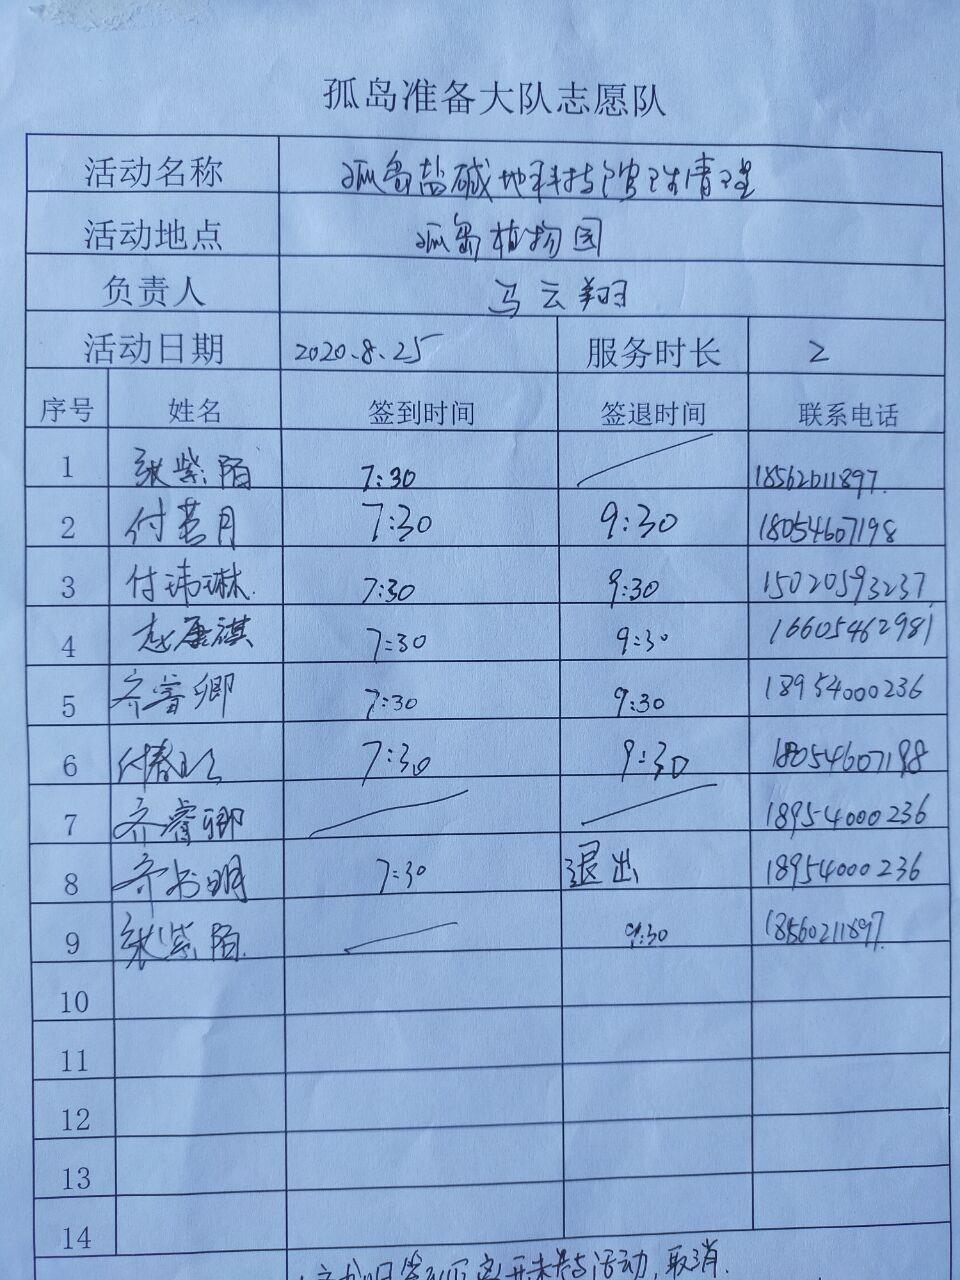 孤岛准备大队志愿队
活动名称 孤岛盐碱地科技馆清理
活动地点 孤岛植物园
负责人 马云翔
活动日期 2020.8.25 服务时长 2
序号 姓名 签到时间 签退时间 联系电话
1 张紫陌 7:30 18562011897.
2 付茗月 7:30 9:30 18054607198
3 付玮琳. 7:30 9:30 15020593237.
4 赵康祺 7:30 9:30 16605462981
5 齐睿卿 7:30 9:30 18954000236
6 付春 7:30 9:30 18054607198
7 齐睿卿 18954000236
8 齐明 7:30 退出 18954000236
9 张紫陌. 9:30 18560211897.
10
11
12
13
14
离开未参与活动,取消.